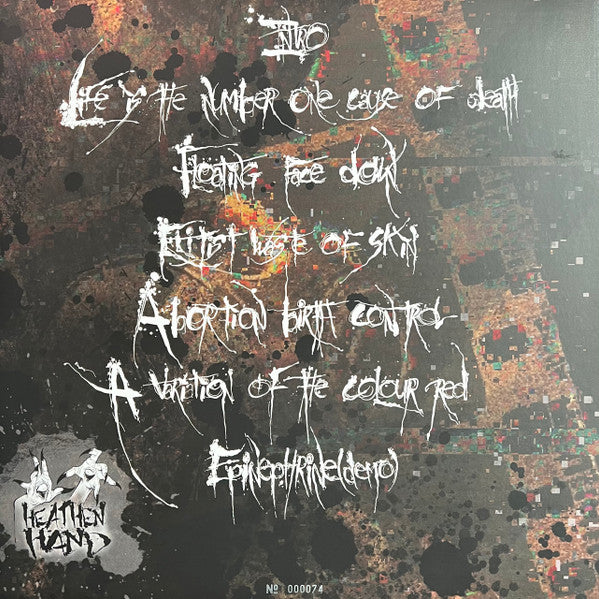 Intro
Life is the number one cause of death
Floating face down
Elitist waste of skin
Abortion birth control
A variation of the colour red
Epinephrine(demo)
HEATHEN
HAND
Nº 000074